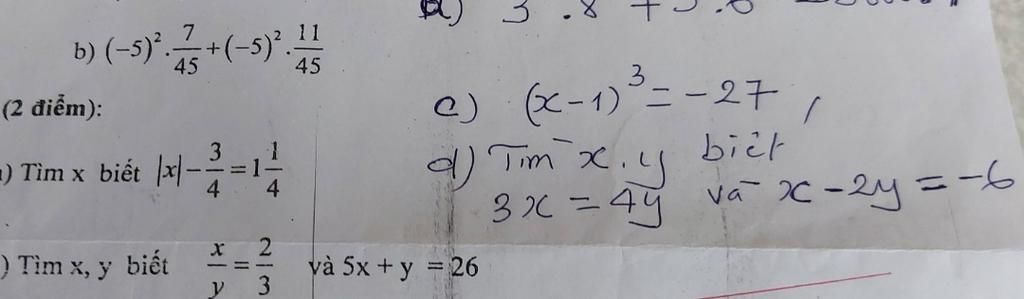 b) (−5)² . 7/45 + (−5)² . 11/45
(2 điểm):
) Tìm x biết |x| − 3/4 = 1 1/4
) Tìm x, y biết x/y = 2/3 và 5x + y = 26
a) 3 . 8 +
c) (x − 1)³ = −27,
d) Tìm x, y biết
3x = 4y và x − 2y = −6